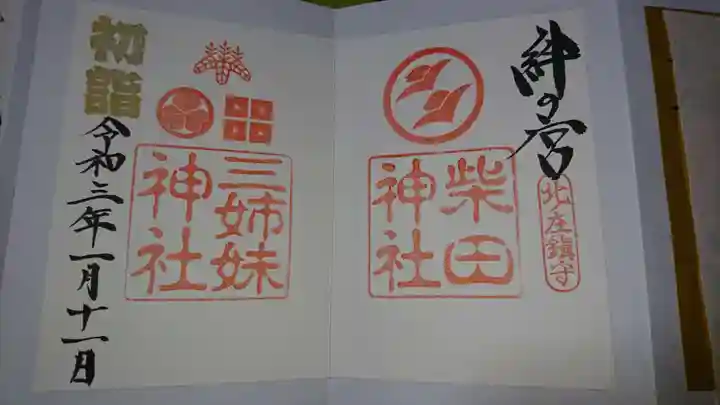 絆の宮
北庄鎮守
柴田
神社
三姉妹
神社
初詣
令和三年一月十一日